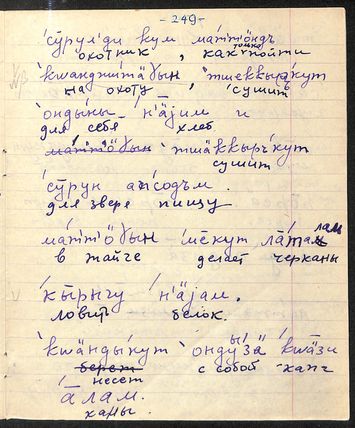 -249-
сӯрул'ди кум ма̄т'т'ӧндъ
охотник, как только пойти
кwанджитӓɣын тшеккыр̨кут
на охоту, сушить
ондыны н'ӓjим и
для себя хлеб
ма̄т'т'ӧɣын тшӓккыръкут
сушит
сӯрун апсодъм.
для звере пищу
ма̄т'т'ӧɣын ме̄кут ла̄талам
в тайге делает черканы
кырыгу н'ӓjам.
ловит белок.
кwӓндыкут ондӯзӓ кwӓзи
берет несет с собой капч
а̄лам.
каны.